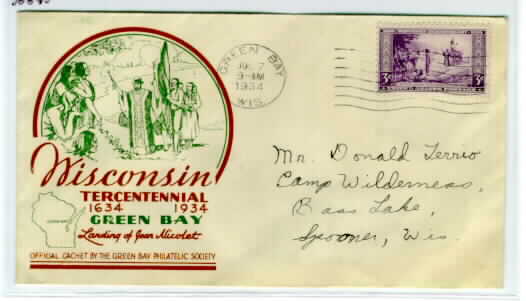 GREEN BAY
JUL 7
9-AM
1934
WIS.
3¢ 3¢
Wisconsin
TERCENTENNIAL
1634 1934
GREEN BAY
Landing of Jean Nicolet
OFFICIAL CACHET BY THE GREEN BAY PHILATELIC SOCIETY
Mr. Donald Terrio
Camp Wilderness,
Bass Lake,
Spooner, Wis.